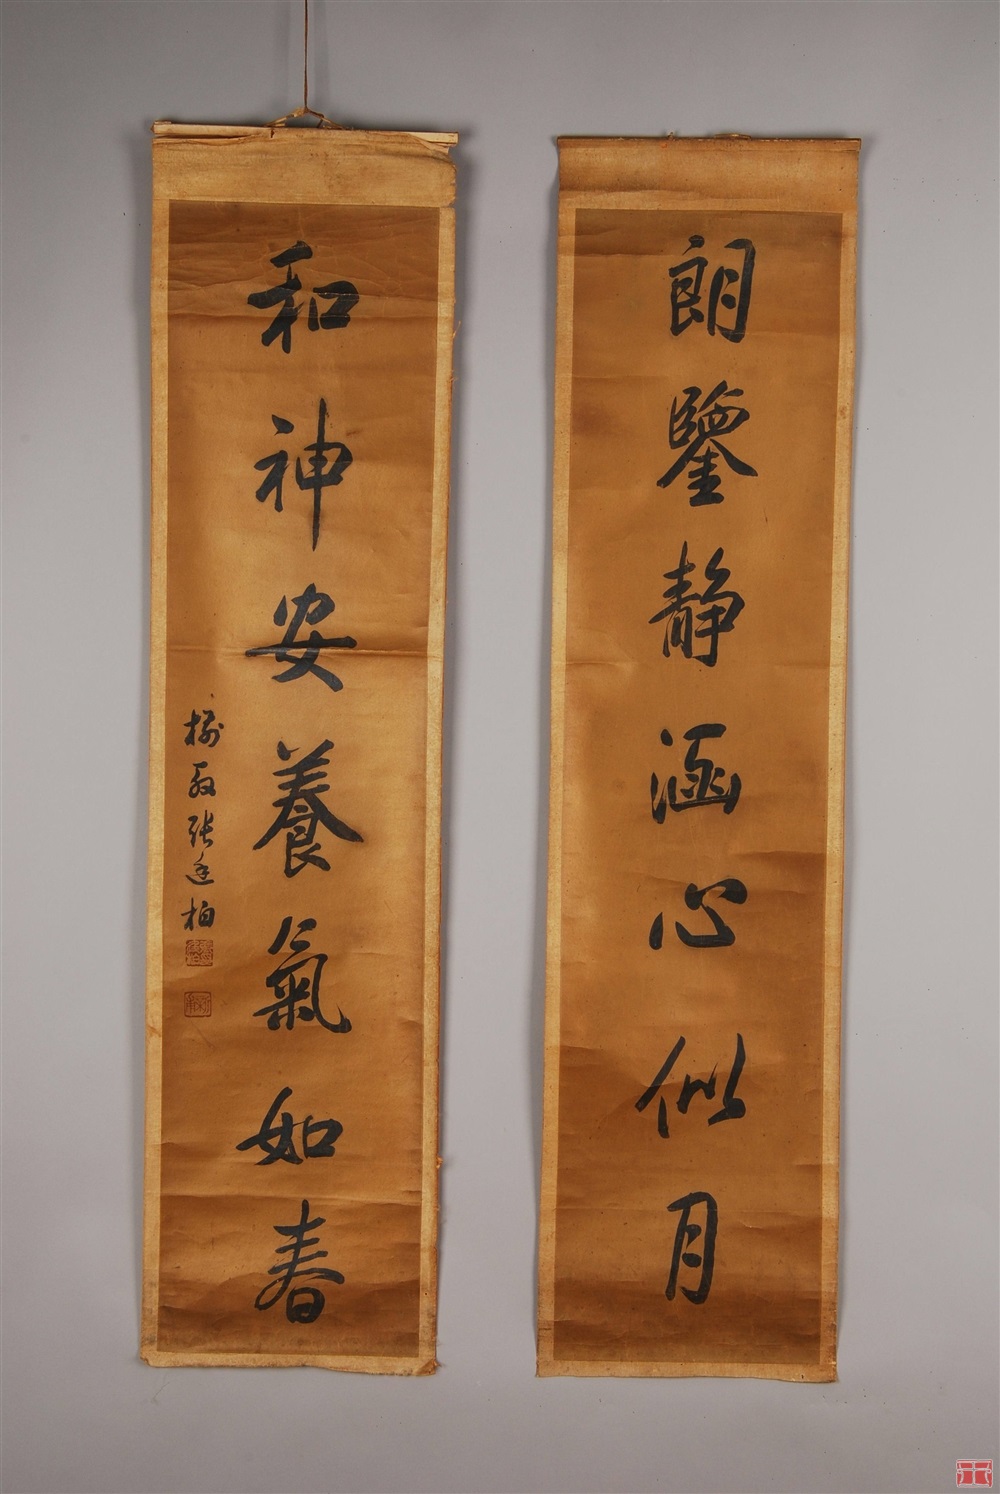 朗鑒静涵心似月
和神安養氣如春
張廷柏